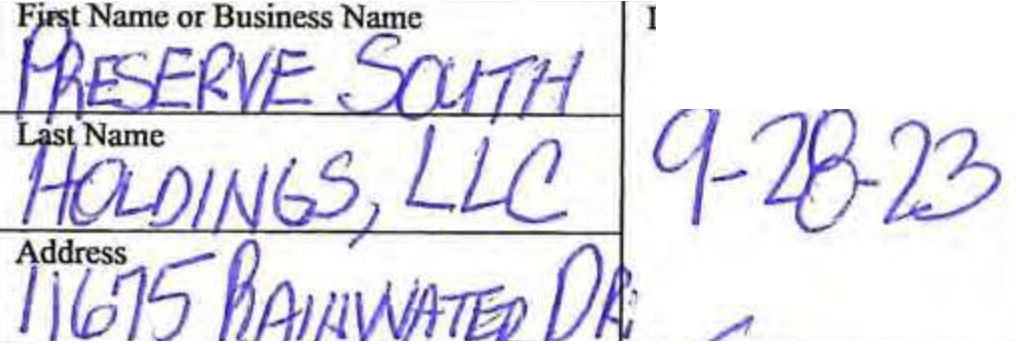 First Name or Business Name
PRESERVE SOUTH
Last Name
HOLDINGS, LLC
9-28-23
Address
11675 RAINWATER DR.